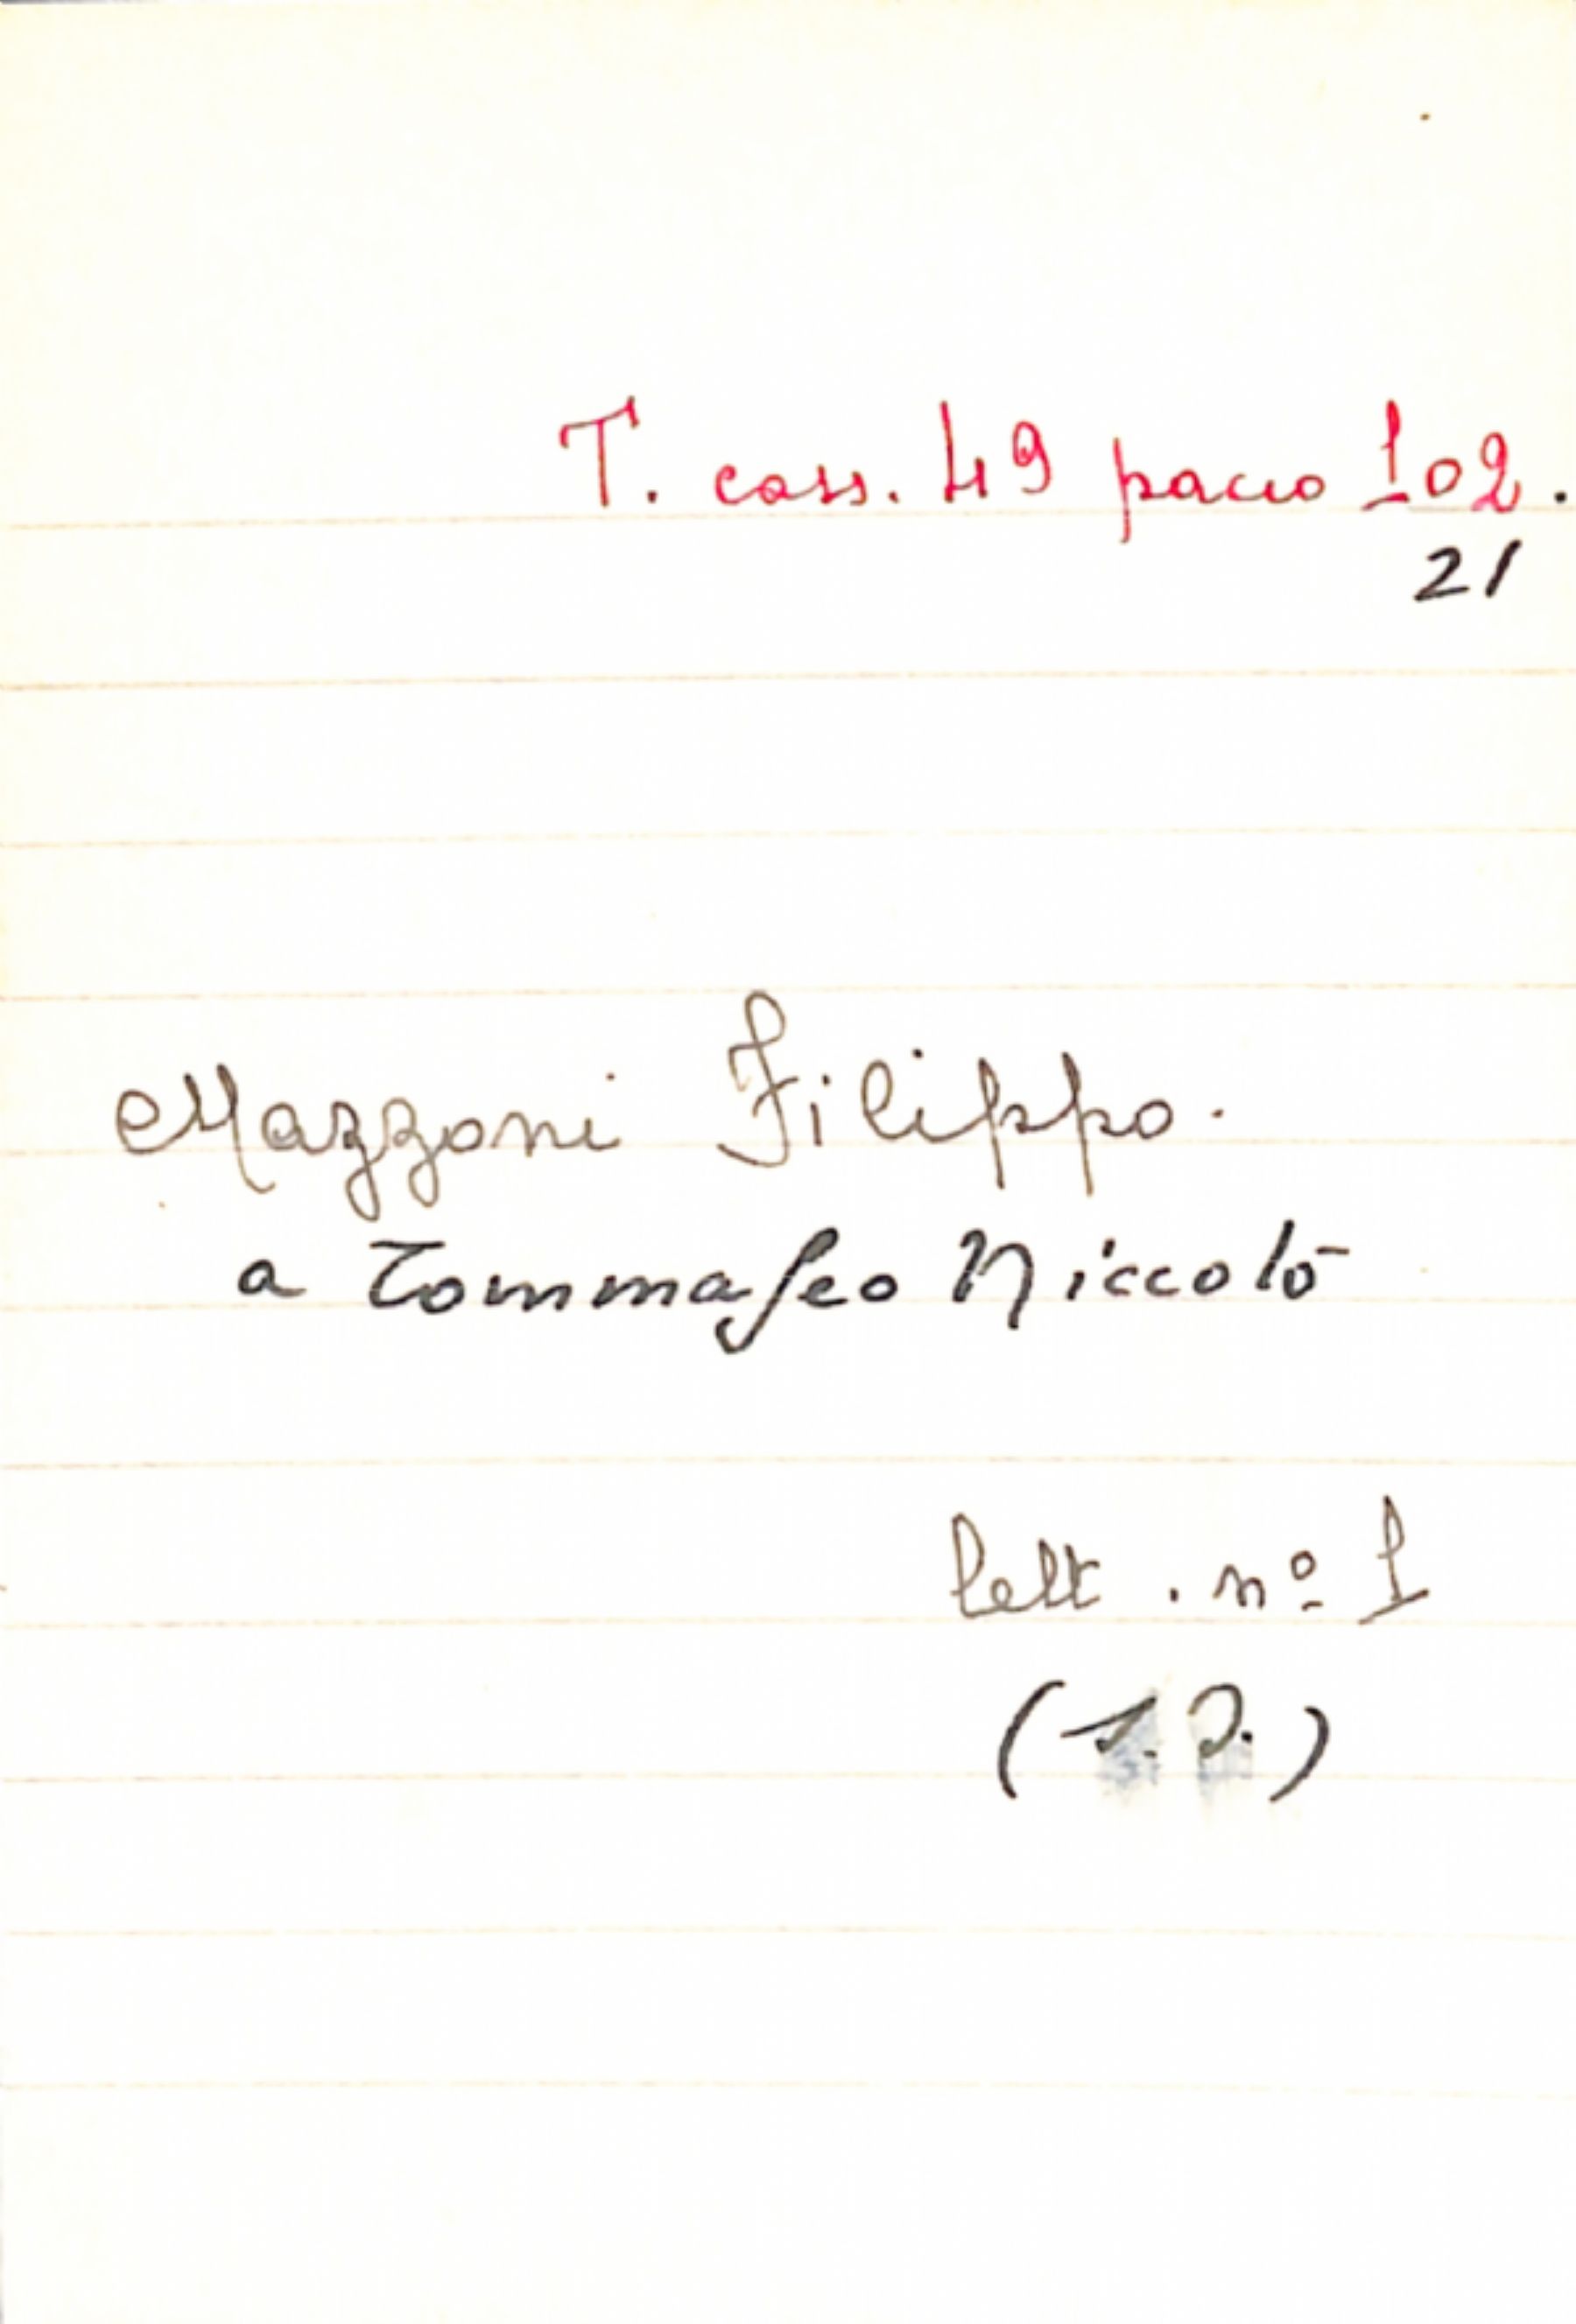 T. cass. 49 pacco 102.
21
Mazzoni Filippo.
a Tommaseo Niccolò
lett. nº 1